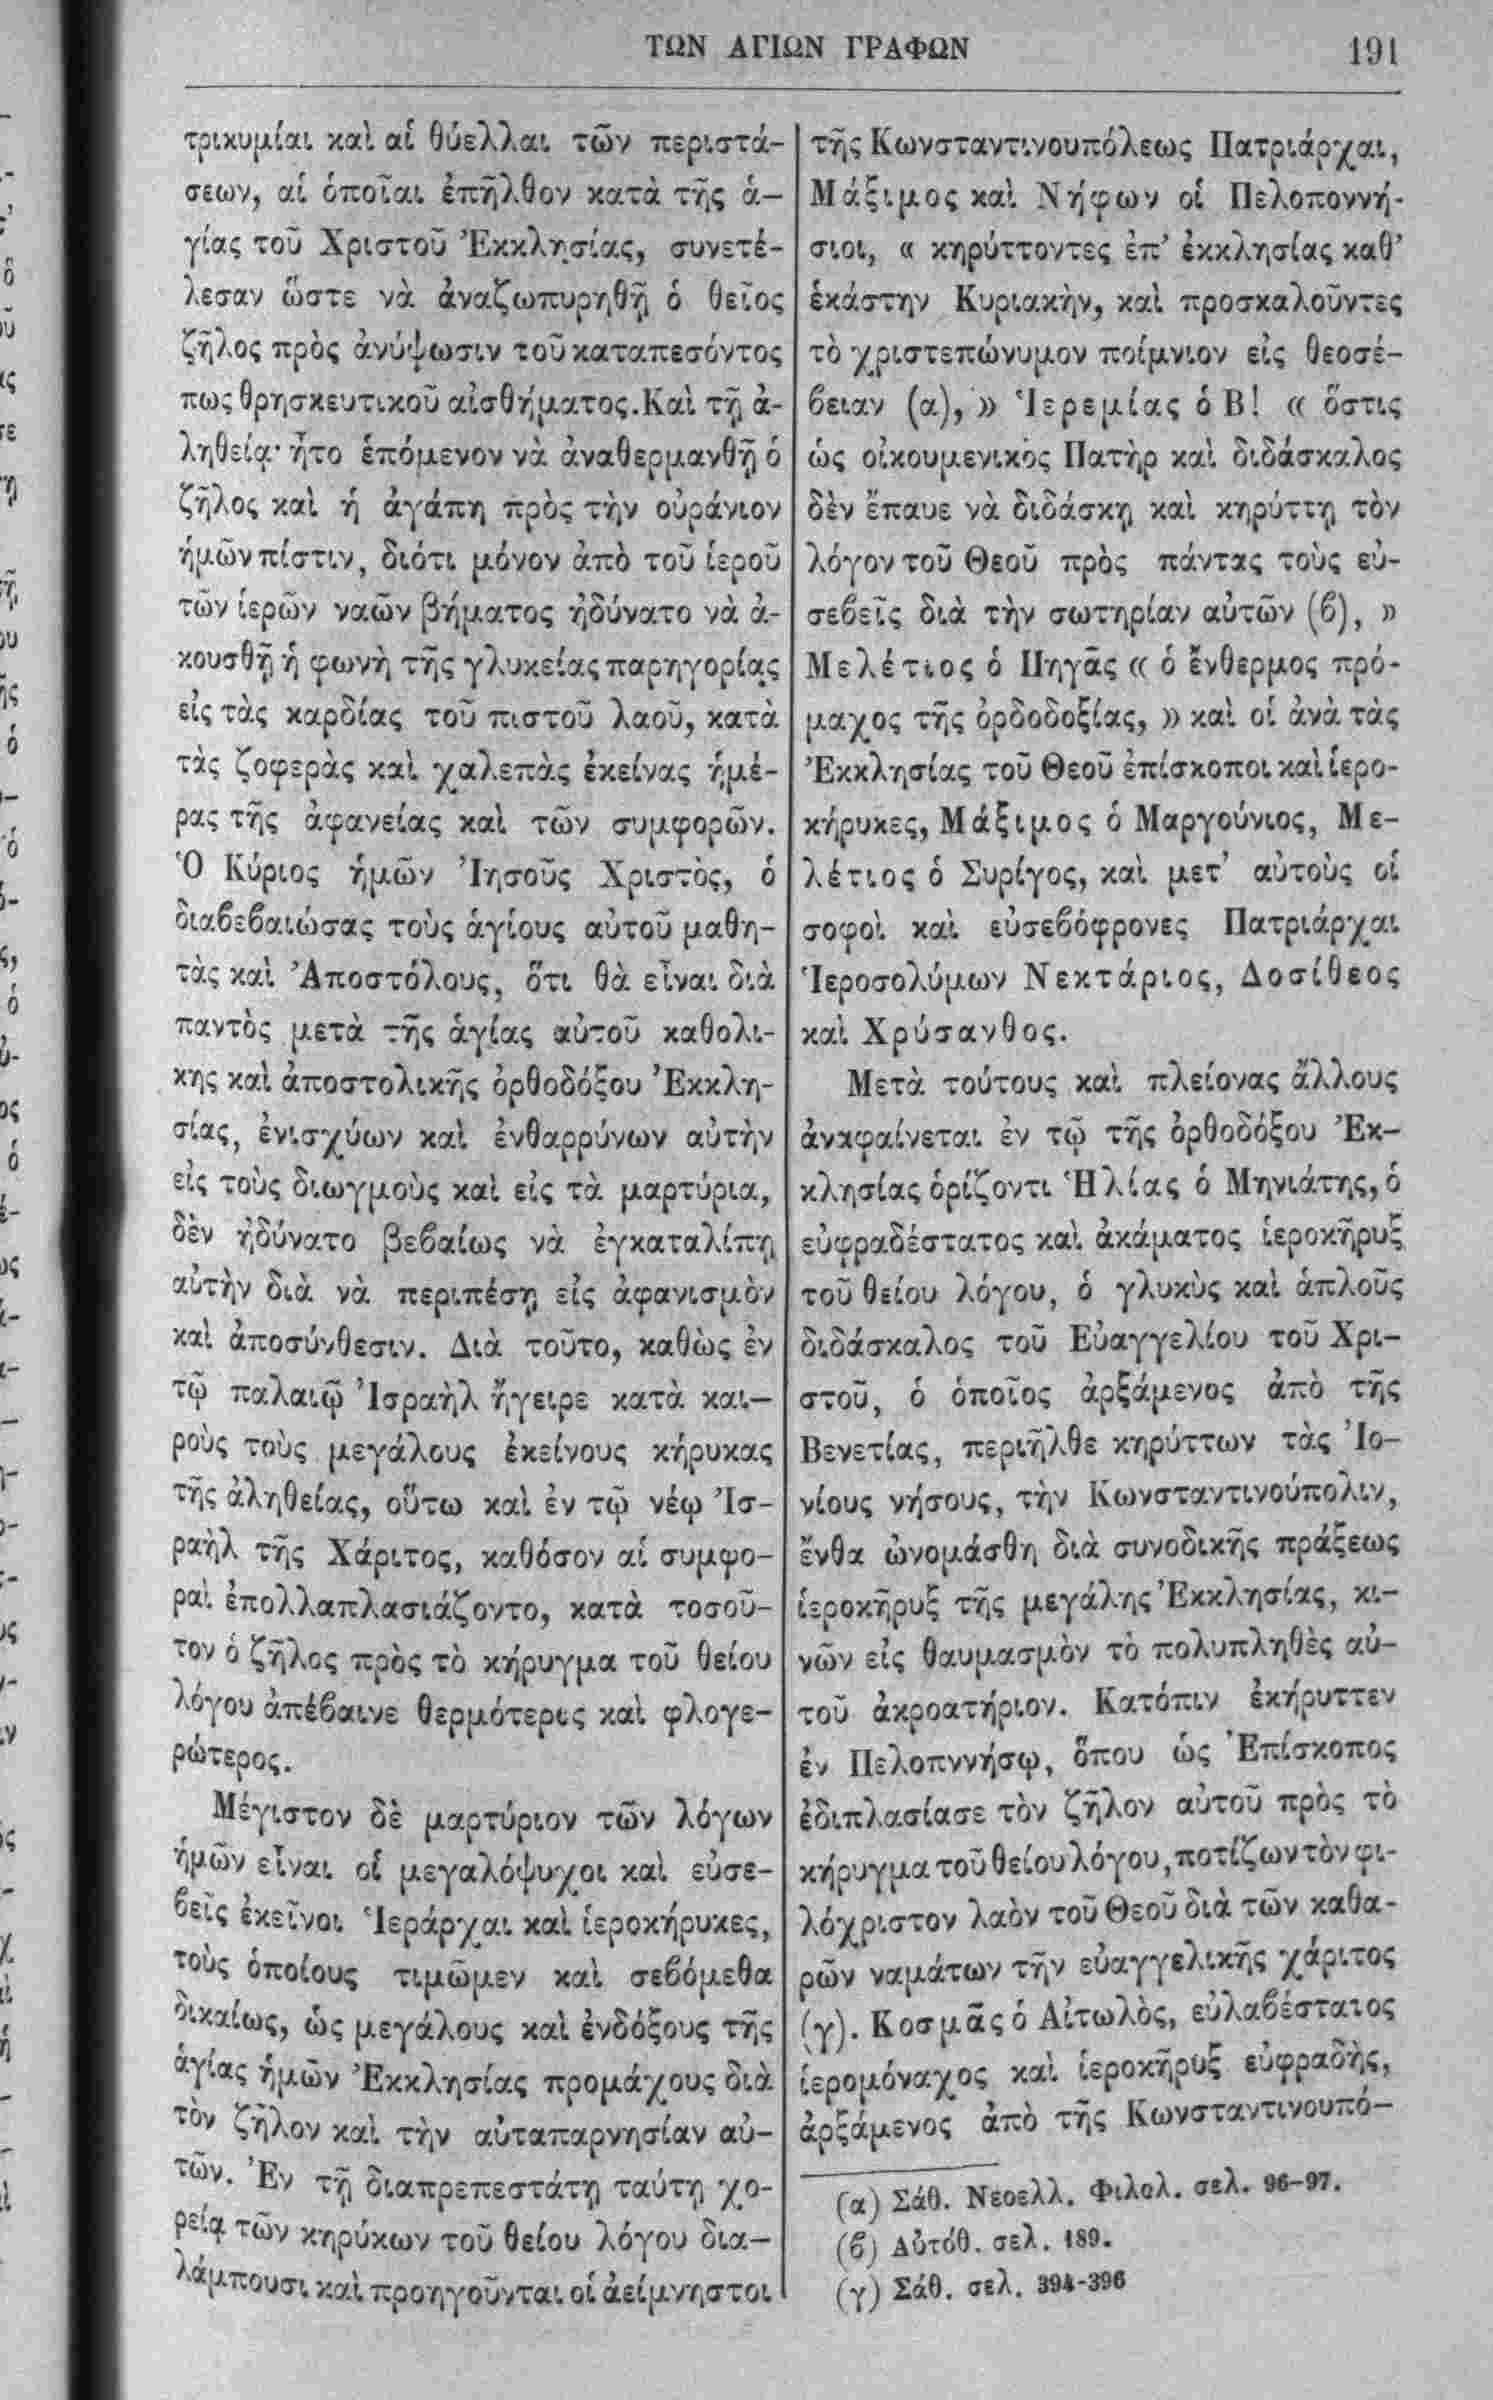 ΤΩΝ ΑΓΙΩΝ ΓΡΑΦΩΝ
191
τρικυμίαι καὶ αἱ θύελλαι τῶν περιστά-
σεων, αἱ ὁποῖαι ἐπῆλθον κατὰ τῆς ἁ-
γίας τοῦ Χριστοῦ Ἐκκλησίας, συνετέ-
λεσαν ὥστε νὰ ἀναζωπυρηθῇ ὁ θεῖος
ζῆλος πρὸς ἀνύψωσιν τοῦ καταπεσόντος
πως θρησκευτικοῦ αἰσθήματος. Καὶ τῇ ἀ-
ληθείᾳ· ἦτο ἑπόμενον νὰ ἀναθερμανθῇ ὁ
ζῆλος καὶ ἡ ἀγάπη πρὸς τὴν οὐράνιον
ἡμῶν πίστιν, διότι μόνον ἀπὸ τοῦ ἱεροῦ
τῶν ἱερῶν ναῶν βήματος ἠδύνατο νὰ ἀ-
κουσθῇ ἡ φωνὴ τῆς γλυκείας παρηγορίας
εἰς τὰς καρδίας τοῦ πιστοῦ λαοῦ, κατὰ
τὰς ζοφερὰς καὶ χαλεπὰς ἐκείνας ἡμέ-
ρας τῆς ἀφανείας καὶ τῶν συμφορῶν.
Ὁ Κύριος ἡμῶν Ἰησοῦς Χριστὸς, ὁ
διαβεβαιώσας τοὺς ἁγίους αὐτοῦ μαθη-
τὰς καὶ Ἀποστόλους, ὅτι θὰ εἶναι διὰ
παντὸς μετὰ τῆς ἁγίας αὐτοῦ καθολι-
κης καὶ ἀποστολικῆς ὀρθοδόξου Ἐκκλη-
σίας, ἐνισχύων καὶ ἐνθαρρύνων αὐτὴν
εἰς τοὺς διωγμοὺς καὶ εἰς τὰ μαρτύρια,
δὲν ἠδύνατο βεβαίως νὰ ἐγκαταλίπῃ
αὐτὴν διὰ νὰ περιπέσῃ εἰς ἀφανισμὸν
καὶ ἀποσύνθεσιν. Διὰ τοῦτο, καθὼς ἐν
τῷ παλαιῷ Ἰσραὴλ ἤγειρε κατὰ και-
ροὺς τοὺς μεγάλους ἐκείνους κήρυκας
τῆς ἀληθείας, οὕτω καὶ ἐν τῷ νέῳ Ἰσ-
ραὴλ τῆς Χάριτος, καθόσον αἱ συμφο-
ραὶ ἐπολλαπλασιάζοντο, κατὰ τοσοῦ-
τον ὁ ζῆλος πρὸς τὸ κήρυγμα τοῦ θείου
λόγου ἀπέβαινε θερμότερος καὶ φλογε-
ρώτερος.
Μέγιστον δὲ μαρτύριον τῶν λόγων
ἡμῶν εἶναι οἱ μεγαλόψυχοι καὶ εὐσε-
βεῖς ἐκεῖνοι Ἱεράρχαι καὶ ἱεροκήρυκες,
τοὺς ὁποίους τιμῶμεν καὶ σεβόμεθα
δικαίως, ὡς μεγάλους καὶ ἐνδόξους τῆς
ἁγίας ἡμῶν Ἐκκλησίας προμάχους διὰ
τὸν ζῆλον καὶ τὴν αὐταπαρνησίαν αὐ-
τῶν. Ἐν τῇ διαπρεπεστάτῃ ταύτῃ χο-
ρείᾳ τῶν κηρύκων τοῦ θείου λόγου δια-
λάμπουσι καὶ προηγοῦνται οἱ ἀείμνηστοι
τῆς Κωνσταντινουπόλεως Πατριάρχαι,
Μάξιμος καὶ Νήφων οἱ Πελοποννή-
σιοι, « κηρύττοντες ἐπ' ἐκκλησίας καθ'
ἑκάστην Κυριακὴν, καὶ προσκαλοῦντες
τὸ χριστεπώνυμον ποίμνιον εἰς θεοσέ-
βειαν (α), » Ἱερεμίας ὁ Β! « ὅστις
ὡς οἰκουμενικὸς Πατὴρ καὶ διδάσκαλος
δὲν ἔπαυε νὰ διδάσκῃ καὶ κηρύττῃ τὸν
λόγον τοῦ Θεοῦ πρὸς πάντας τοὺς εὐ-
σεβεῖς διὰ τὴν σωτηρίαν αὐτῶν (β), »
Μελέτιος ὁ Πηγᾶς « ὁ ἔνθερμος πρό-
μαχος τῆς ὀρδοδοξίας, » καὶ οἱ ἀνὰ τὰς
Ἐκκλησίας τοῦ Θεοῦ ἐπίσκοποι καὶ ἱερο-
κήρυκες, Μάξιμος ὁ Μαργούνιος, Με-
λέτιος ὁ Συρίγος, καὶ μετ' αὐτοὺς οἱ
σοφοὶ καὶ εὐσεβόφρονες Πατριάρχαι
Ἱεροσολύμων Νεκτάριος, Δοσίθεος
καὶ Χρύσανθος.
Μετὰ τούτους καὶ πλείονας ἄλλους
ἀναφαίνεται ἐν τῷ τῆς ὀρθοδόξου Ἐκ-
κλησίας ὁρίζοντι Ἡλίας ὁ Μηνιάτης, ὁ
εὐφραδέστατος καὶ ἀκάματος ἱεροκῆρυξ
τοῦ θείου λόγου, ὁ γλυκὺς καὶ ἁπλοῦς
διδάσκαλος τοῦ Εὐαγγελίου τοῦ Χρι-
στοῦ, ὁ ὁποῖος ἀρξάμενος ἀπὸ τῆς
Βενετίας, περιῆλθε κηρύττων τὰς Ἰο-
νίους νήσους, τὴν Κωνσταντινούπολιν,
ἔνθα ὠνομάσθη διὰ συνοδικῆς πράξεως
ἱεροκῆρυξ τῆς μεγάλης Ἐκκλησίας, κι-
νῶν εἰς θαυμασμὸν τὸ πολυπληθὲς αὐ-
τοῦ ἀκροατήριον. Κατόπιν ἐκήρυττεν
ἐν Πελοπννήσῳ, ὅπου ὡς Ἐπίσκοπος
ἐδιπλασίασε τὸν ζῆλον αὐτοῦ πρὸς τὸ
κήρυγμα τοῦ θείου λόγου, ποτίζων τὸν φι-
λόχριστον λαὸν τοῦ Θεοῦ διὰ τῶν καθα-
ρῶν ναμάτων τῆν εὐαγγελικῆς χάριτος
(γ). Κοσμᾶς ὁ Αἰτωλὸς, εὐλαβέστατος
ἱερομόναχος καὶ ἱεροκῆρυξ εὐφραδὴς,
ἀρξάμενος ἀπὸ τῆς Κωνσταντινουπό-
(α) Σάθ. Νεοελλ. Φιλολ. σελ. 96-97.
(β) Αὐτόθ. σελ. 189.
(γ) Σάθ. σελ. 394-396